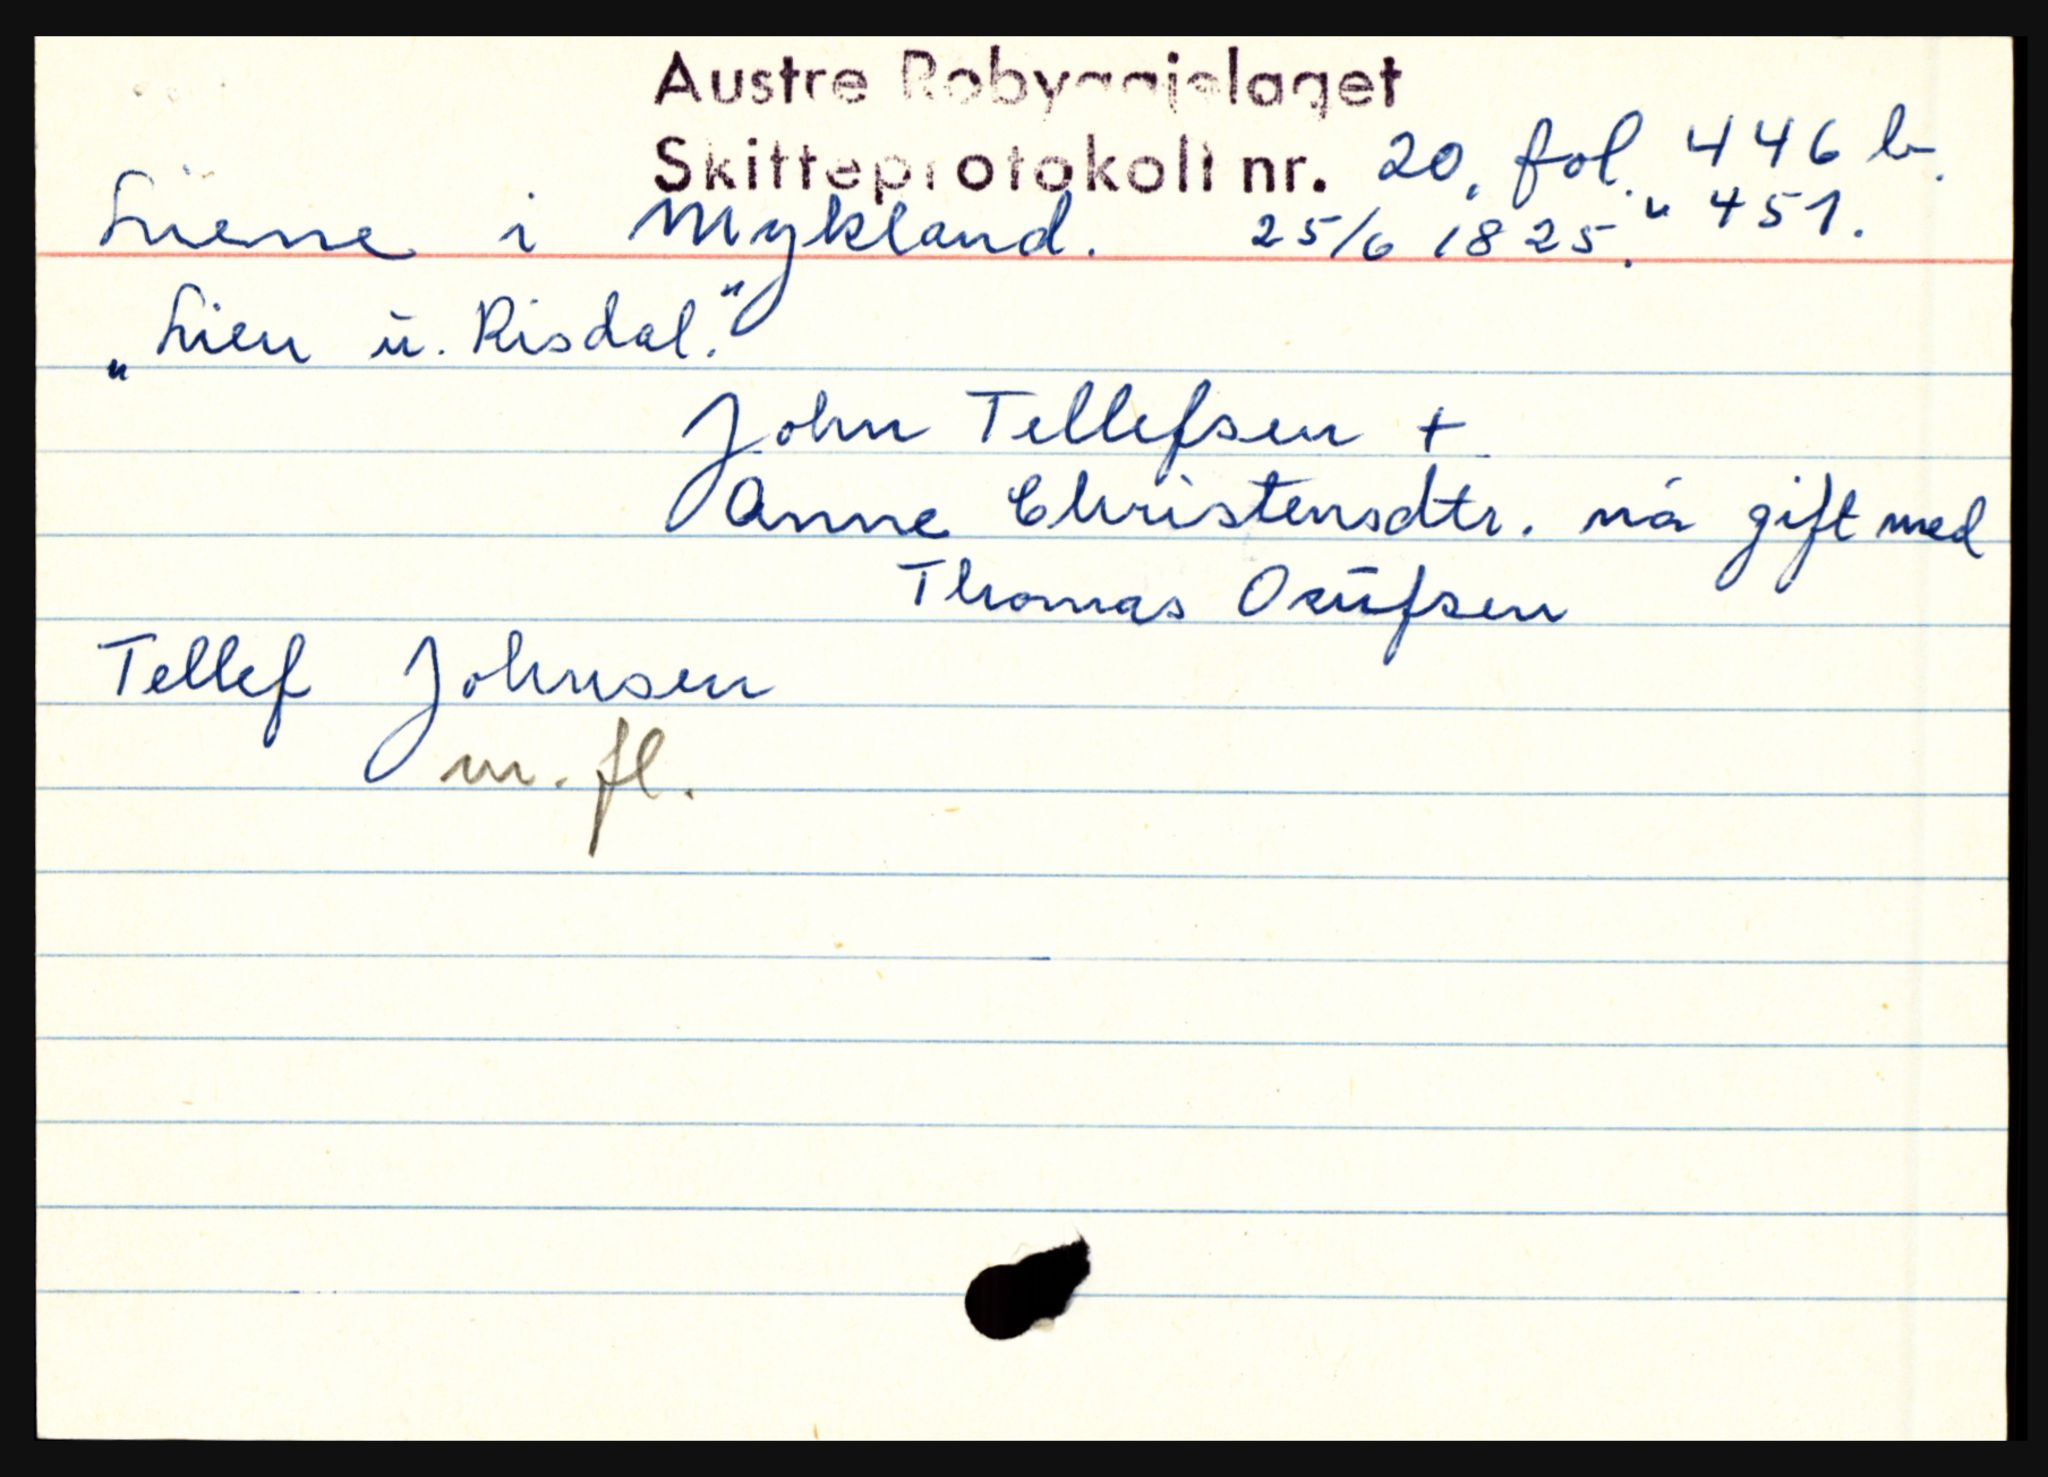 Austre Robyggjelaget
Skifteprotokoll nr. 20. fol. 446 b.
Liene i Mykland. 25/6 1825. " 451.
„Lien u. Risdal."
John Tellefsen +
Anne Christensdtr. nå gift med
Thomas Osufsen
Tellef Johnsen
m. fl.